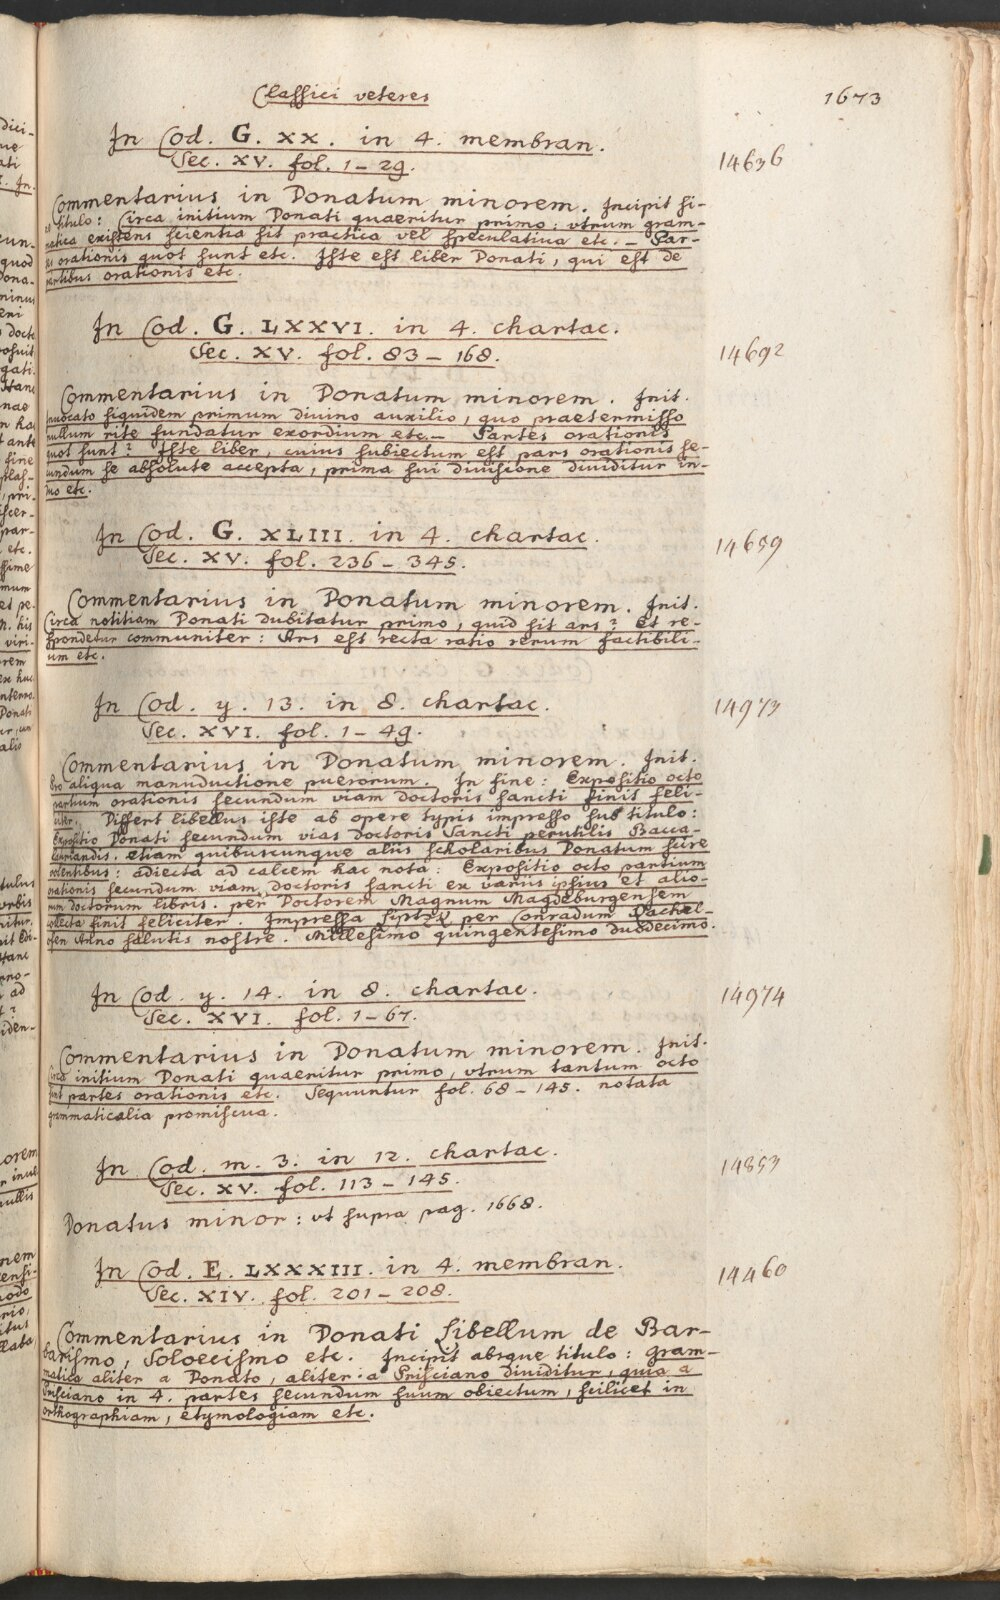 Classici veteres
1673
In Cod. G. XX. in 4. membran.
Sec. XV. fol. 1–29.
14636
Commentarius in Donatum minorem. Incipit si-
titulo: Circa initium Donati quaeritur primo: vtrum gram-
matica existens scientia sit practica vel speculatiua etc. – Par-
orationis quot sunt etc. Iste est liber Donati, qui est de
partibus orationis etc.
In Cod. G. LXXVI. in 4. chartac.
Sec. XV. fol. 83–168.
14692
Commentarius in Donatum minorem. Init.
Inuocato siquidem primum diuino auxilio, quo praetermisso
nullum rite fundatur exordium etc. – Partes orationis
quot sunt? Iste liber, cuius subiectum est pars orationis se-
cundum se absolute accepta, prima sui diuisione diuiditur in-
etc.
In Cod. G. XLIII. in 4. chartac.
Sec. XV. fol. 236–345.
14659
Commentarius in Donatum minorem. Init.
Circa notitiam Donati dubitatur primo, quid sit ars? Et re-
spondetur communiter: Ars est recta ratio rerum factibili-
um etc.
In Cod. y. 13. in 8. chartac.
Sec. XVI. fol. 1–49.
14973
Commentarius in Donatum minorem. Init.
Pro aliqua manuductione puerorum. In fine: Expositio octo
partium orationis secundum viam doctoris sancti finit feli-
citer. Differt libellus iste ab opere typis impresso sub titulo:
Expositio Donati secundum vias doctoris Sancti perutilis Bacca-
lauriandis. etiam quibuscunque aliis scholaribus Donatum scire
volentibus: adiecta ad calcem hac nota: Expositio octo partium
orationis secundum viam doctoris sancti ex variis ipsius et alio-
rum doctorum libris. per Doctorem Magnum Magdeburgensem
collecta finit feliciter. Impressa Liptzk per Conradum Kachel-
ofen Anno salutis nostre. Millesimo quingentesimo duodecimo.
In Cod. y. 14. in 8. chartac.
Sec. XVI. fol. 1–67.
14974
Commentarius in Donatum minorem. Init.
Circa initium Donati quaeritur primo, vtrum tantum octo
sint partes orationis etc. Sequuntur fol. 68–145. notata
grammaticalia promiscua.
In Cod. m. 3. in 12. chartac.
Sec. XV. fol. 113–145.
14853
Donatus minor: vt supra pag. 1668.
In Cod. E. LXXXIII. in 4. membran.
Sec. XIV. fol. 201–208.
14460
Commentarius in Donati Libellum de Bar-
barismo, Soloecismo etc. Incipit absque titulo: Gram-
matica aliter a Donato, aliter a Prisciano diuiditur, quia a
Prisciano in 4. partes secundum suum obiectum, scilicet in
orthographiam, etymologiam etc.